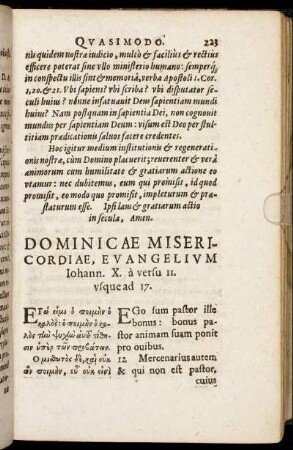 QVASIMODO. 223
nū quidem nostra iudicio, multò & facilius & rectius
efficere poterat sine vllo ministerio humano: semperq́;
in conspectu illis sint & memoriâ, verba Apostoli 1. Cor.
1,20. & 21. Vbi sapiens? vbi scriba? vbi disputator se
culi huius? nónne infatuauit Deus sapientiam mundi
huius? Nam postquam in sapientia Dei, non cognouit
mundus per sapientiam Deum: visum est Deo per stul-
titiam prædicationis saluos facere credentes.
Hoc igitur medium institutionis & regenerati-
onis nostræ, cùm Domino placuerit; reuerenter & verâ
animorum cum humilitate & gratiarum actione eo
vtamur: nec dubitemus, eum qui promisit, id quod
promisit, eo modo quo promisit, impleturum & præ-
staturum esse. Ipsi laus & gratiarum actio
in secula, Amen.
DOMINICAE MISERI-
CORDIAE, EVANGELIVM
Iohann. X. à versu 11.
vsque ad 17.
Ἐγώ εἰμι ὁ ποιμὴν ὁ
καλός: ὁ ποιμὴν ὁ κα
λὸς τὴν ψυχὴν αὑτ͂ τίθη-
σιν ὑπὲρ τῶν προβάτων.
Ὁ μισθωτὸς δὲ, καὶ οὐκ
ὢν ποιμὴν, οὗ οὐκ εἰσὶ
EGo sum pastor ille
bonus: bonus pa-
stor animam suam ponit
pro ouibus.
12. Mercenarius autem
& qui non est pastor,
cuius